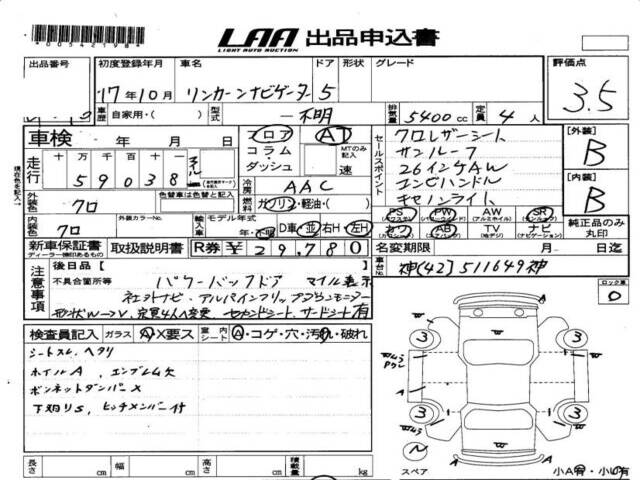 4005421984
LAA 出品申込書
LIGHT AUTO AUCTION
出品番号 初度登録年月 車名 ドア 形状 グレード 評価点
17年10月 リンカーンナビゲーター 5 3.5
車歴 自家用・( ) 型式 不明 排気量 5400cc 定員 4人
車検 年 月 日 フロア AT セールスポイント クロレザーシート [外装]
コラム・ MTのみ記入 サンルーフ B
走行 十万千百十 59038 マイル ダッシュ 速 26インチAW [内装]
冷房 AAC コンビハンドル B
外装色 クロ 色替車は色替と記入 燃料 ガソリン・軽油・( ) キセノンライト
PS PW AW SR 純正品のみ丸印
内装色 クロ 外装カラーNo. 輸入車 モデル年式 年・不明 D車 並 右H・左H カワ AB TV ナビ
新車保証書 取扱説明書 R券 ¥29,780 名変期限 月 日迄
ディーラー捺印あるもの
注意事項 後日品[ ] 車台No. 神(42)511649神
不具合箇所等 パワーバックドア マイル表示 ロック車
社外ナビ、アルパインフリップダウンモニター 0
形状W→V、定員4人変更、セカンドシート、サードシート有
検査員記入 ガラス A・X要ス 室内 シート A・コゲ・穴・汚れ・破れ
シートスレ、ヘタリ
ホイルA、エンブレム欠
ボンネットダンパーX
下廻りS、ヒッチメンバー付
3 3
3 3
スペア 小A有・小U有
長さ cm 幅 cm 高さ cm 積載量 kg